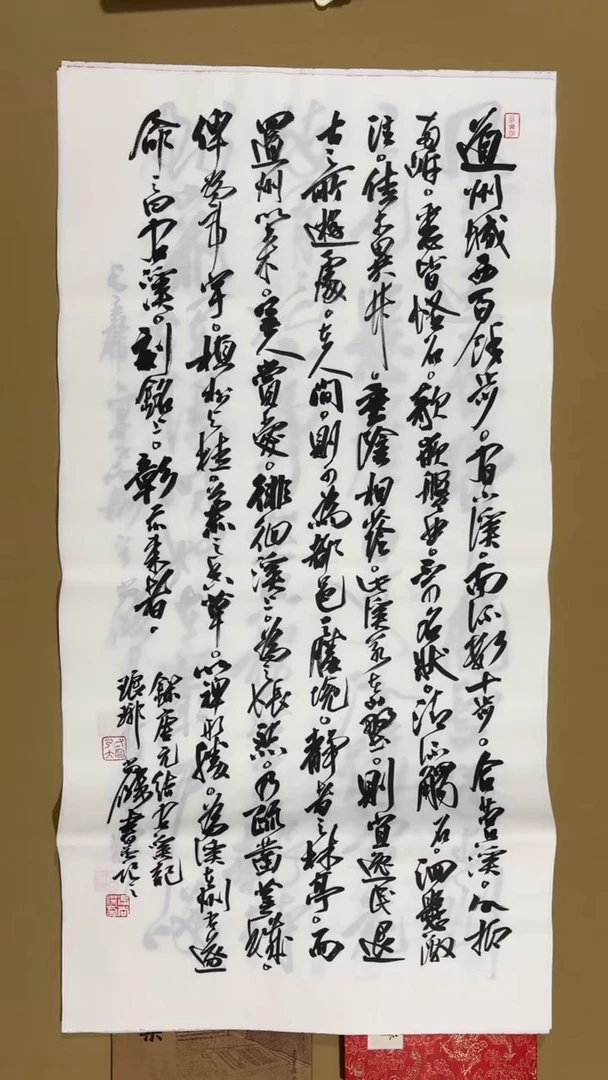 道州城西百餘步。有小溪。南流數十步。合營溪。水抵
兩岸。悉皆怪石。欹嵌盤屈。不可名狀。清流觸石。洄懸激
注。佳木異竹。垂陰相蔭。此溪若在山野。則宜逸民退
士之所遊處。在人間。則可為都邑之勝境。靜者之林亭。而
置州以來。無人賞愛。徘徊溪上。為之悵然。乃疏鑿蕪穢。
俾為亭宇。植松與桂。兼之香草。以裨形勝。為溪在州右遂
命之曰右溪。刻銘上。彰示來者。
錄唐元結右溪記
瑯琊 書